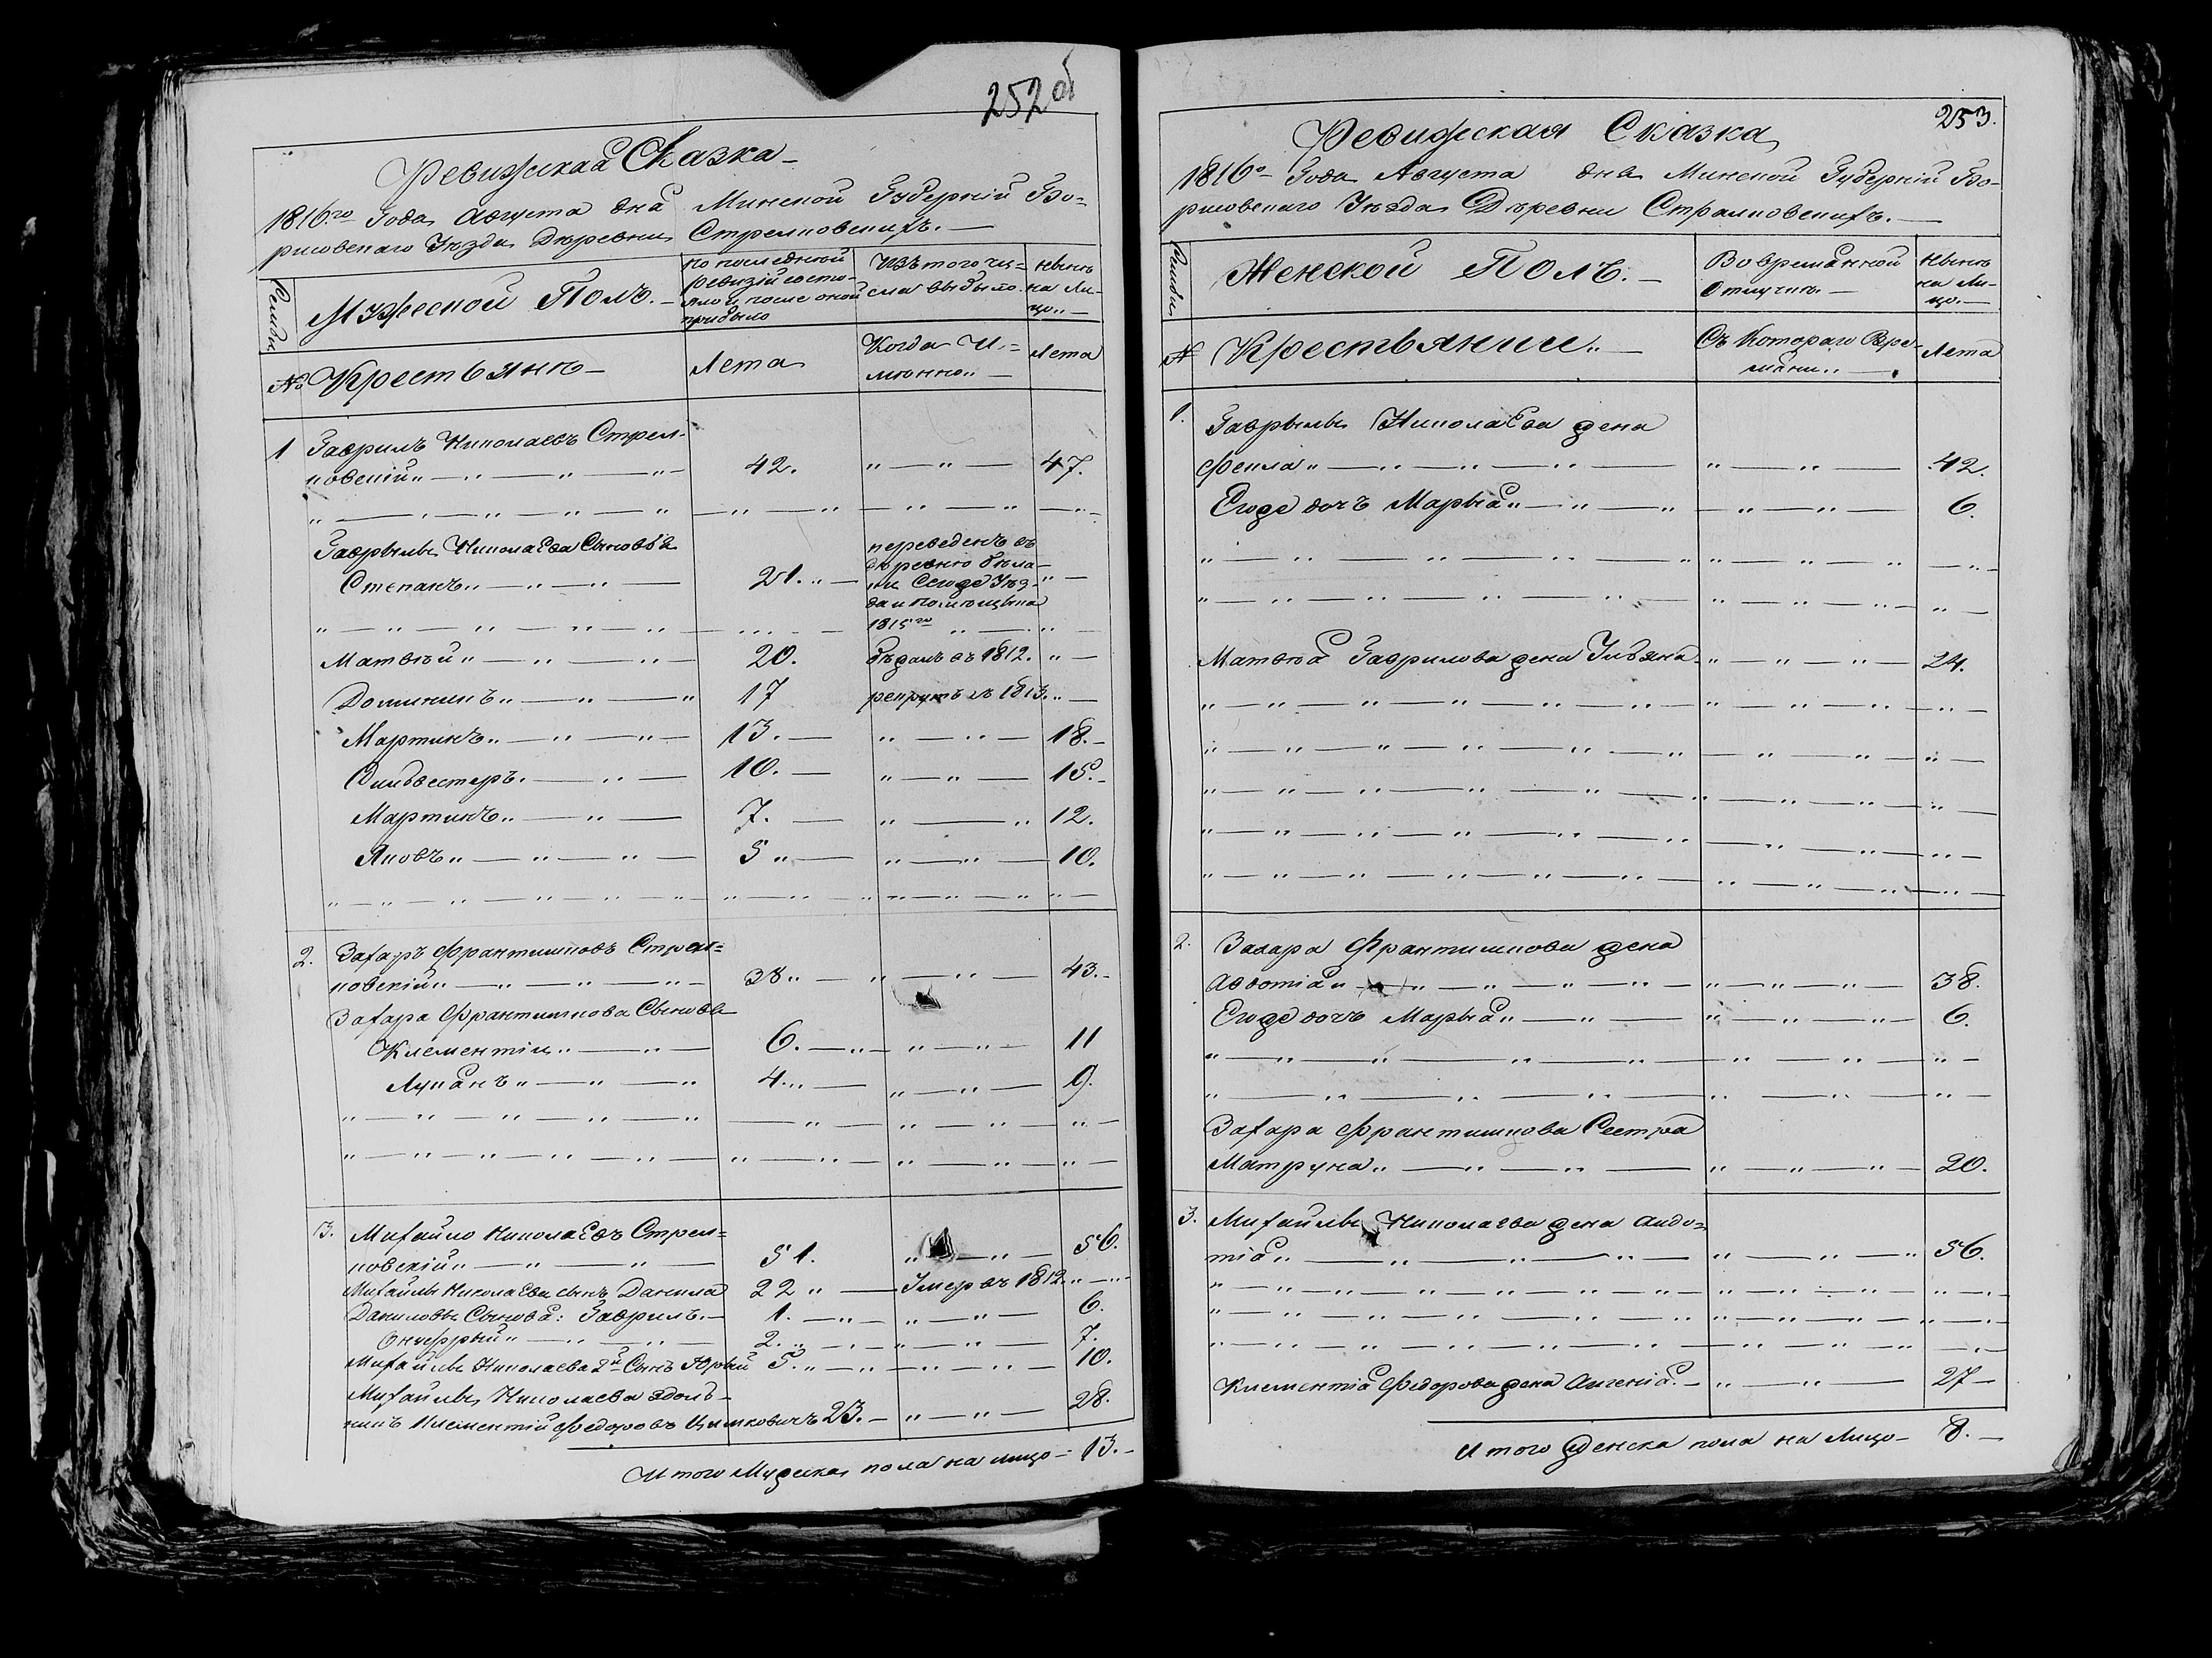 252 об
Ревижская Сказка
1816го Года Августа дня Минской Губерніи Бо=
рисовскаго Уѣзда Дѣревни Стрелковскихъ.
Семьи
Мужеской Полъ.
по последнюй
ревизіи состо-
яло и после оной
прибыло
Изъ того чи=
сла выбыло
нынѣ
на Ли-
цо
№ Крестьянъ
Лета
Когда И=
мянно
Лета
1 Гаврилъ Николаевъ Стрел-
ковскій 42. 47.
Гаврылы Николаева Сыновья
Степанъ 21.
переведенъ въ
дѣревню
Сегоже Уѣз-
да и помющыка
1815го
Матвѣй 20. бѣжалъ въ 1812.
Доминикъ 17 рекрутъ въ 1813.
Мартинъ 13. 18.
Сильвестеръ 10. 15.
Мартинъ 7. 12.
Яковъ 5 10.
2. Захаръ Франтишковъ Стрел=
ковскій 38 43.
Захара Франтишкова Сыновья
Клементіи 6. 11
Лукянъ 4. 9.
3. Михайло Николаевъ Стрел=
ковскій 51. 56.
Михайлы Николаева сынъ Данила 22 Умеръ въ 1812
Даниловы Сыновя: Гаврилъ 1. 6.
Онуфрый 2. 7.
Михайлы Николаева 2й Сынъ Юрый 5. 10.
Михайлы Николаева
Клементій Федоровъ 23. 28.
Итого Мужеска пола на лицо 13.
253.
Ревижская Сказка
1816го Года Августа дня Минской Губерніи Бо-
рисовскаго Уѣзда Дѣревни Стралковскихъ.
Семьи
Женской Полъ.
Во времянной
Отлучкѣ
Нынѣ
на Ли-
цо
№ Крестьянии
Съ Котораго Вре-
мани
Лета
1. Гаврылы Николаева жена
Фекла 42.
Егоже дочъ Марыя 6.
Матвѣя Гаврилова жена Ульяна 24.
2. Захара Франтишкова жена
Авдотія 38.
Егоже дочъ Марыя 6.
Захара Франтишкова Сестра
Матруна 20.
3. Михайлы Николаева жена Авдо=
тія 56.
Клементія Федорова жена Авгенія 27
Итого Женска пола на Лицо 8.